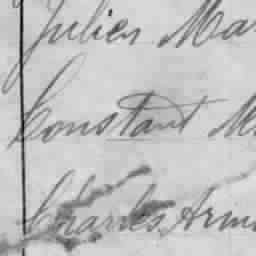 Julien Ma
Constant M
Charles Arm